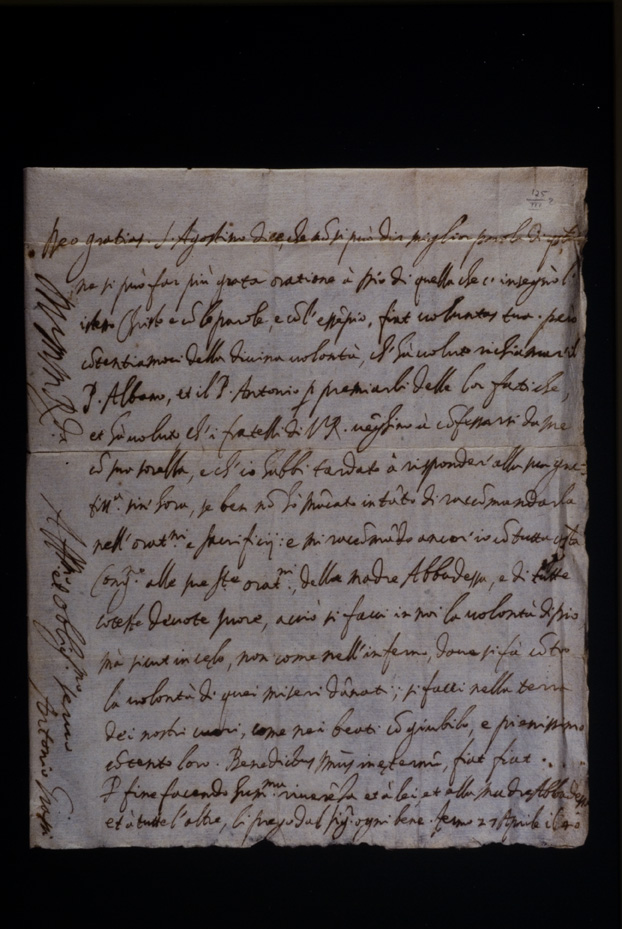 125
III
Deo gratias. S. Agostino dice che nō si può dir meglio parole di
ne si può far più grata oratione à Dio di quella che ci insegnò l'
istesso Christo e cō le parole, e cō l'essēpio, fiat voluntas tua. pero
cōtentiamoci della divina volontà, ch'hà voluto richiamar il
P. Albano, et il P. Antonio p premiarli delle lor fatiche,
et hà voluto ch'i fratelli di V.R. à cōfessarsi da me
cō sorella, e ch'io habbi tardato à risponder alla sua
sin' hora, se ben nō hò mācato intāto di raccōmandarla
nell' orat.ni e sacrificij: e mi raccōmādo ancor io cō tutta
Cong.ne alle sue orat.ni, della madre Abbadessa, e di tutte
coteste devote suore, acciò si facci in noi la volontà di Dio
mà sicut in celo, non come nell' inferno, dove si fà cōtro
la volontà di quei miseri dānati; si facci nella terra
dei nostri cuori, come nei beati cō giubilo, e pienissimo
cōtento loro. Benedictus in eternū, fiat fiat.
P fine facendo riverēza et à lei et alla madre Abbadessa
et à tutte l'altre, li prego dal Sig.r ogni bene. fermo 27 Aprile
Di V. R.da
Aff.mo et obli.mo servo
Antonio